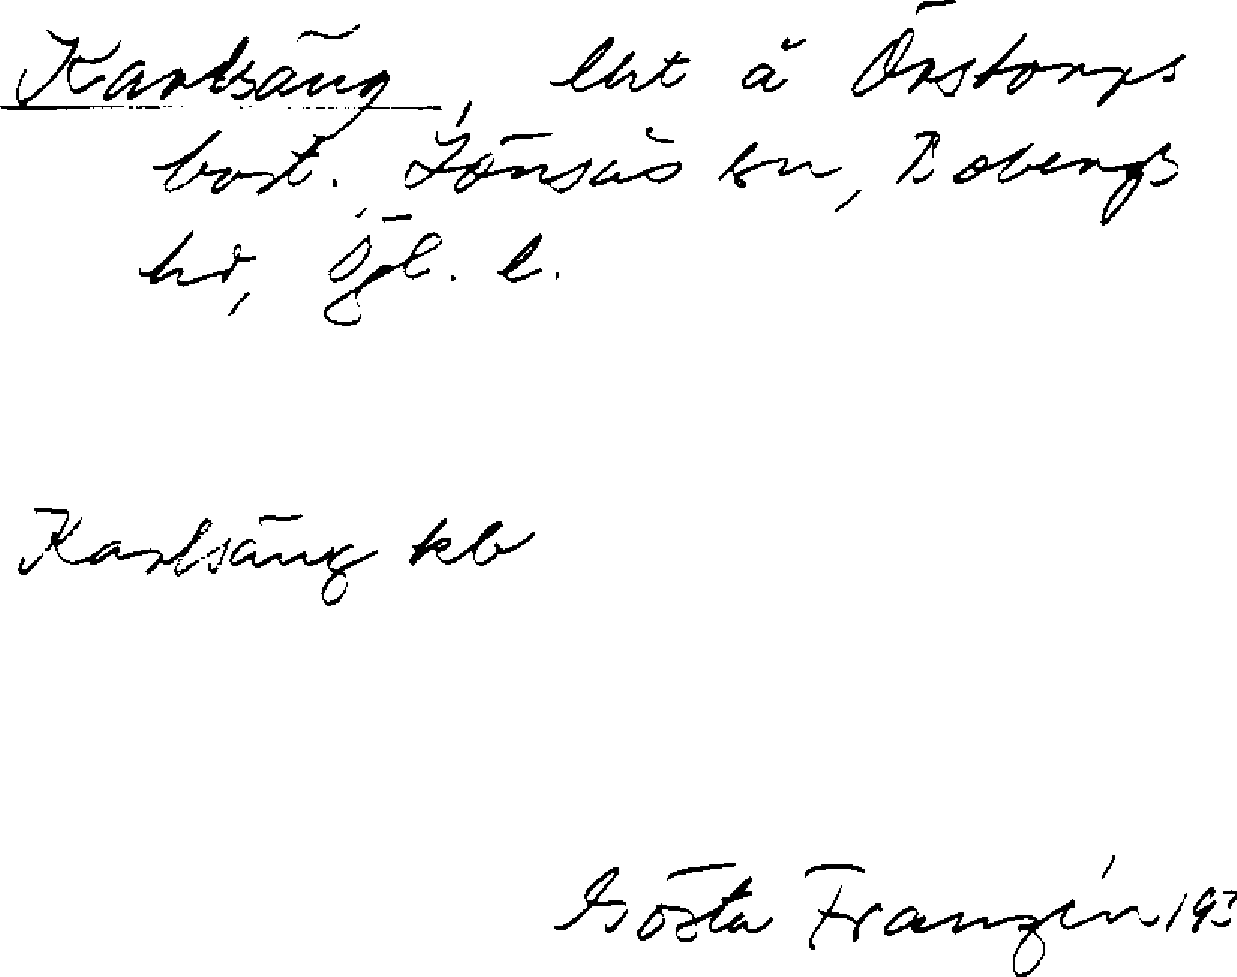 Karlsäng, lht å Örstorps
bost. Lönsås sn, Bobergs
hd, Ögl. l.
Karlsäng kb
Gösta Franzén 193